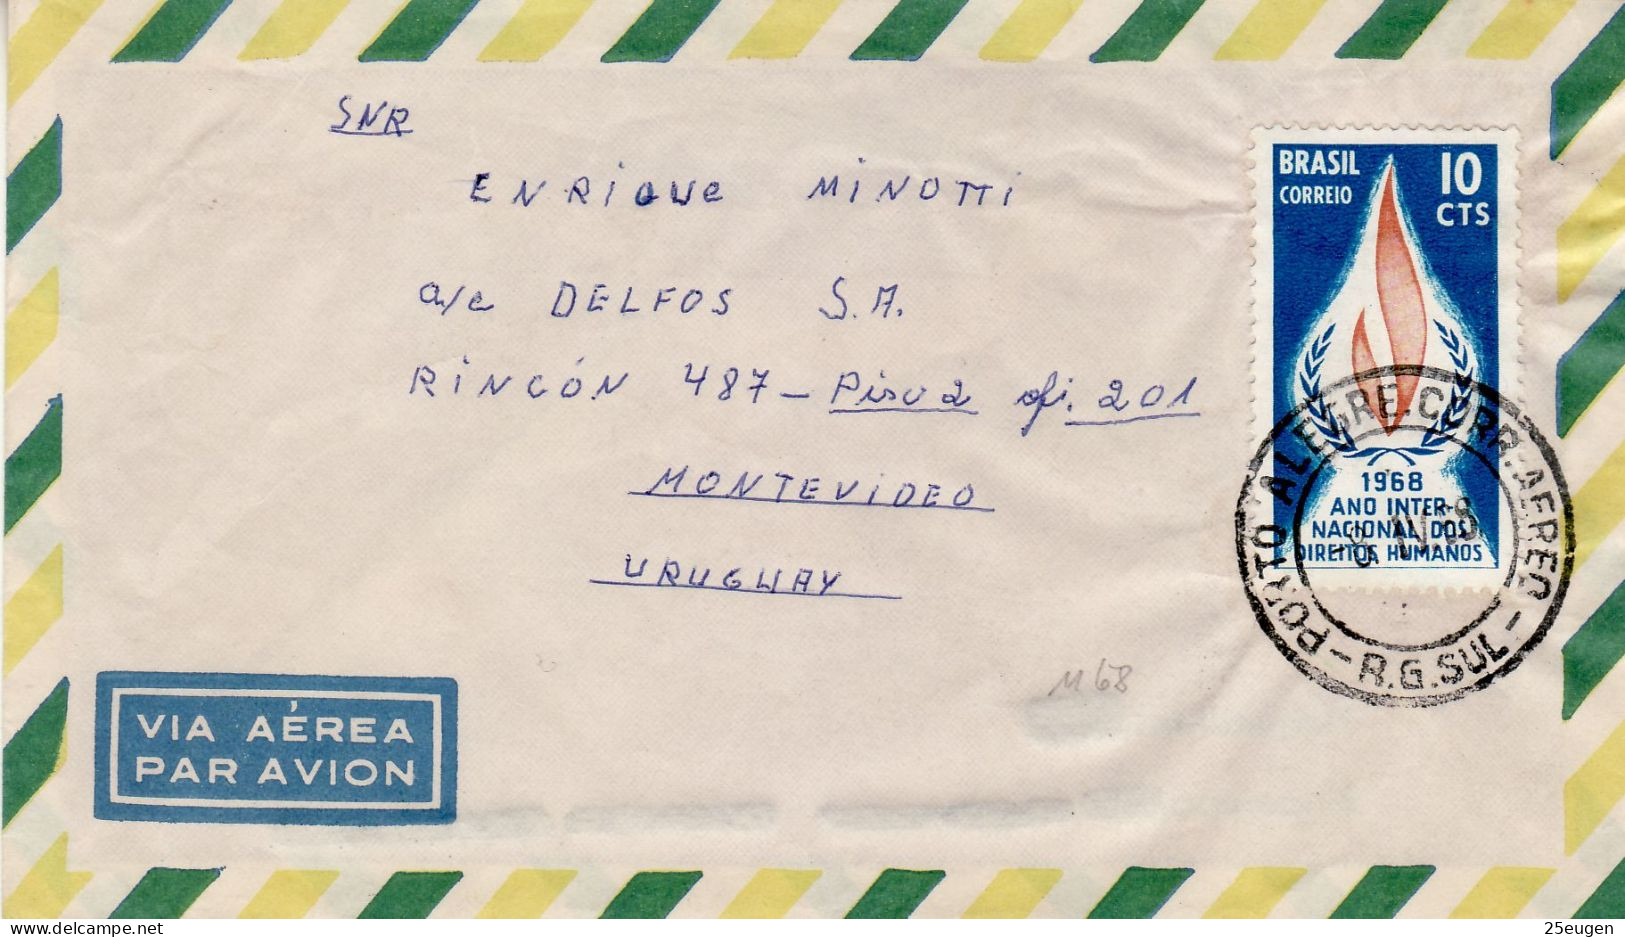 SNR
ENRIQUE MINOTTI
a/c DELFOS S.A.
RINCÓN 487 - Piso 2 ofi. 201
MONTEVIDEO
URUGUAY
BRASIL
CORREIO
10
CTS
1968
ANO INTER-
NACIONAL DOS
DIREITOS HUMANOS
PORTO ALEGRE-CORR-AEREO - R.G.SUL -
IV.68
M68
VIA AÉREA
PAR AVION
25eugen
delcampe.net